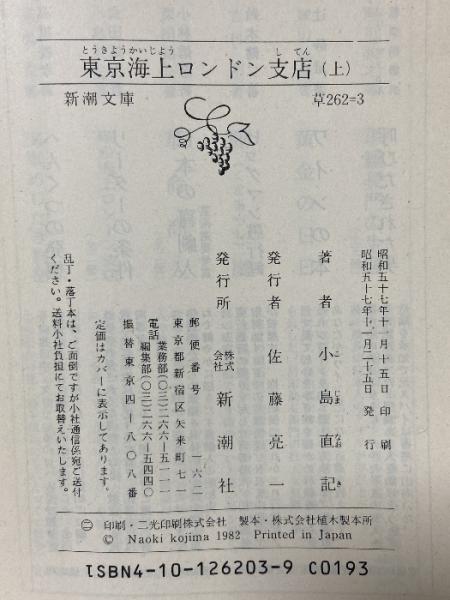 とうきようかいじよう
してん
東京海上ロンドン支店(上)
新潮文庫
草262=3
昭和五十七年十一月十五日印刷
昭和五十七年十一月二十五日発行
著者 小島直記
こ じま なお き
発行者 佐藤亮一
発行所 株式会社 新潮社
郵便番号 一六二
東京都新宿区矢来町七一
電話 業務部(〇三)二六六―五一一一
編集部(〇三)二六六―五四四〇
振替東京四―八〇八番
定価はカバーに表示してあります。
乱丁・落丁本は、ご面倒ですが小社通信係宛ご送付
ください。送料小社負担にてお取替えいたします。
印刷・二光印刷株式会社 製本・株式会社植木製本所
© Naoki kojima 1982 Printed in Japan
ISBN4-10-126203-9 C0193